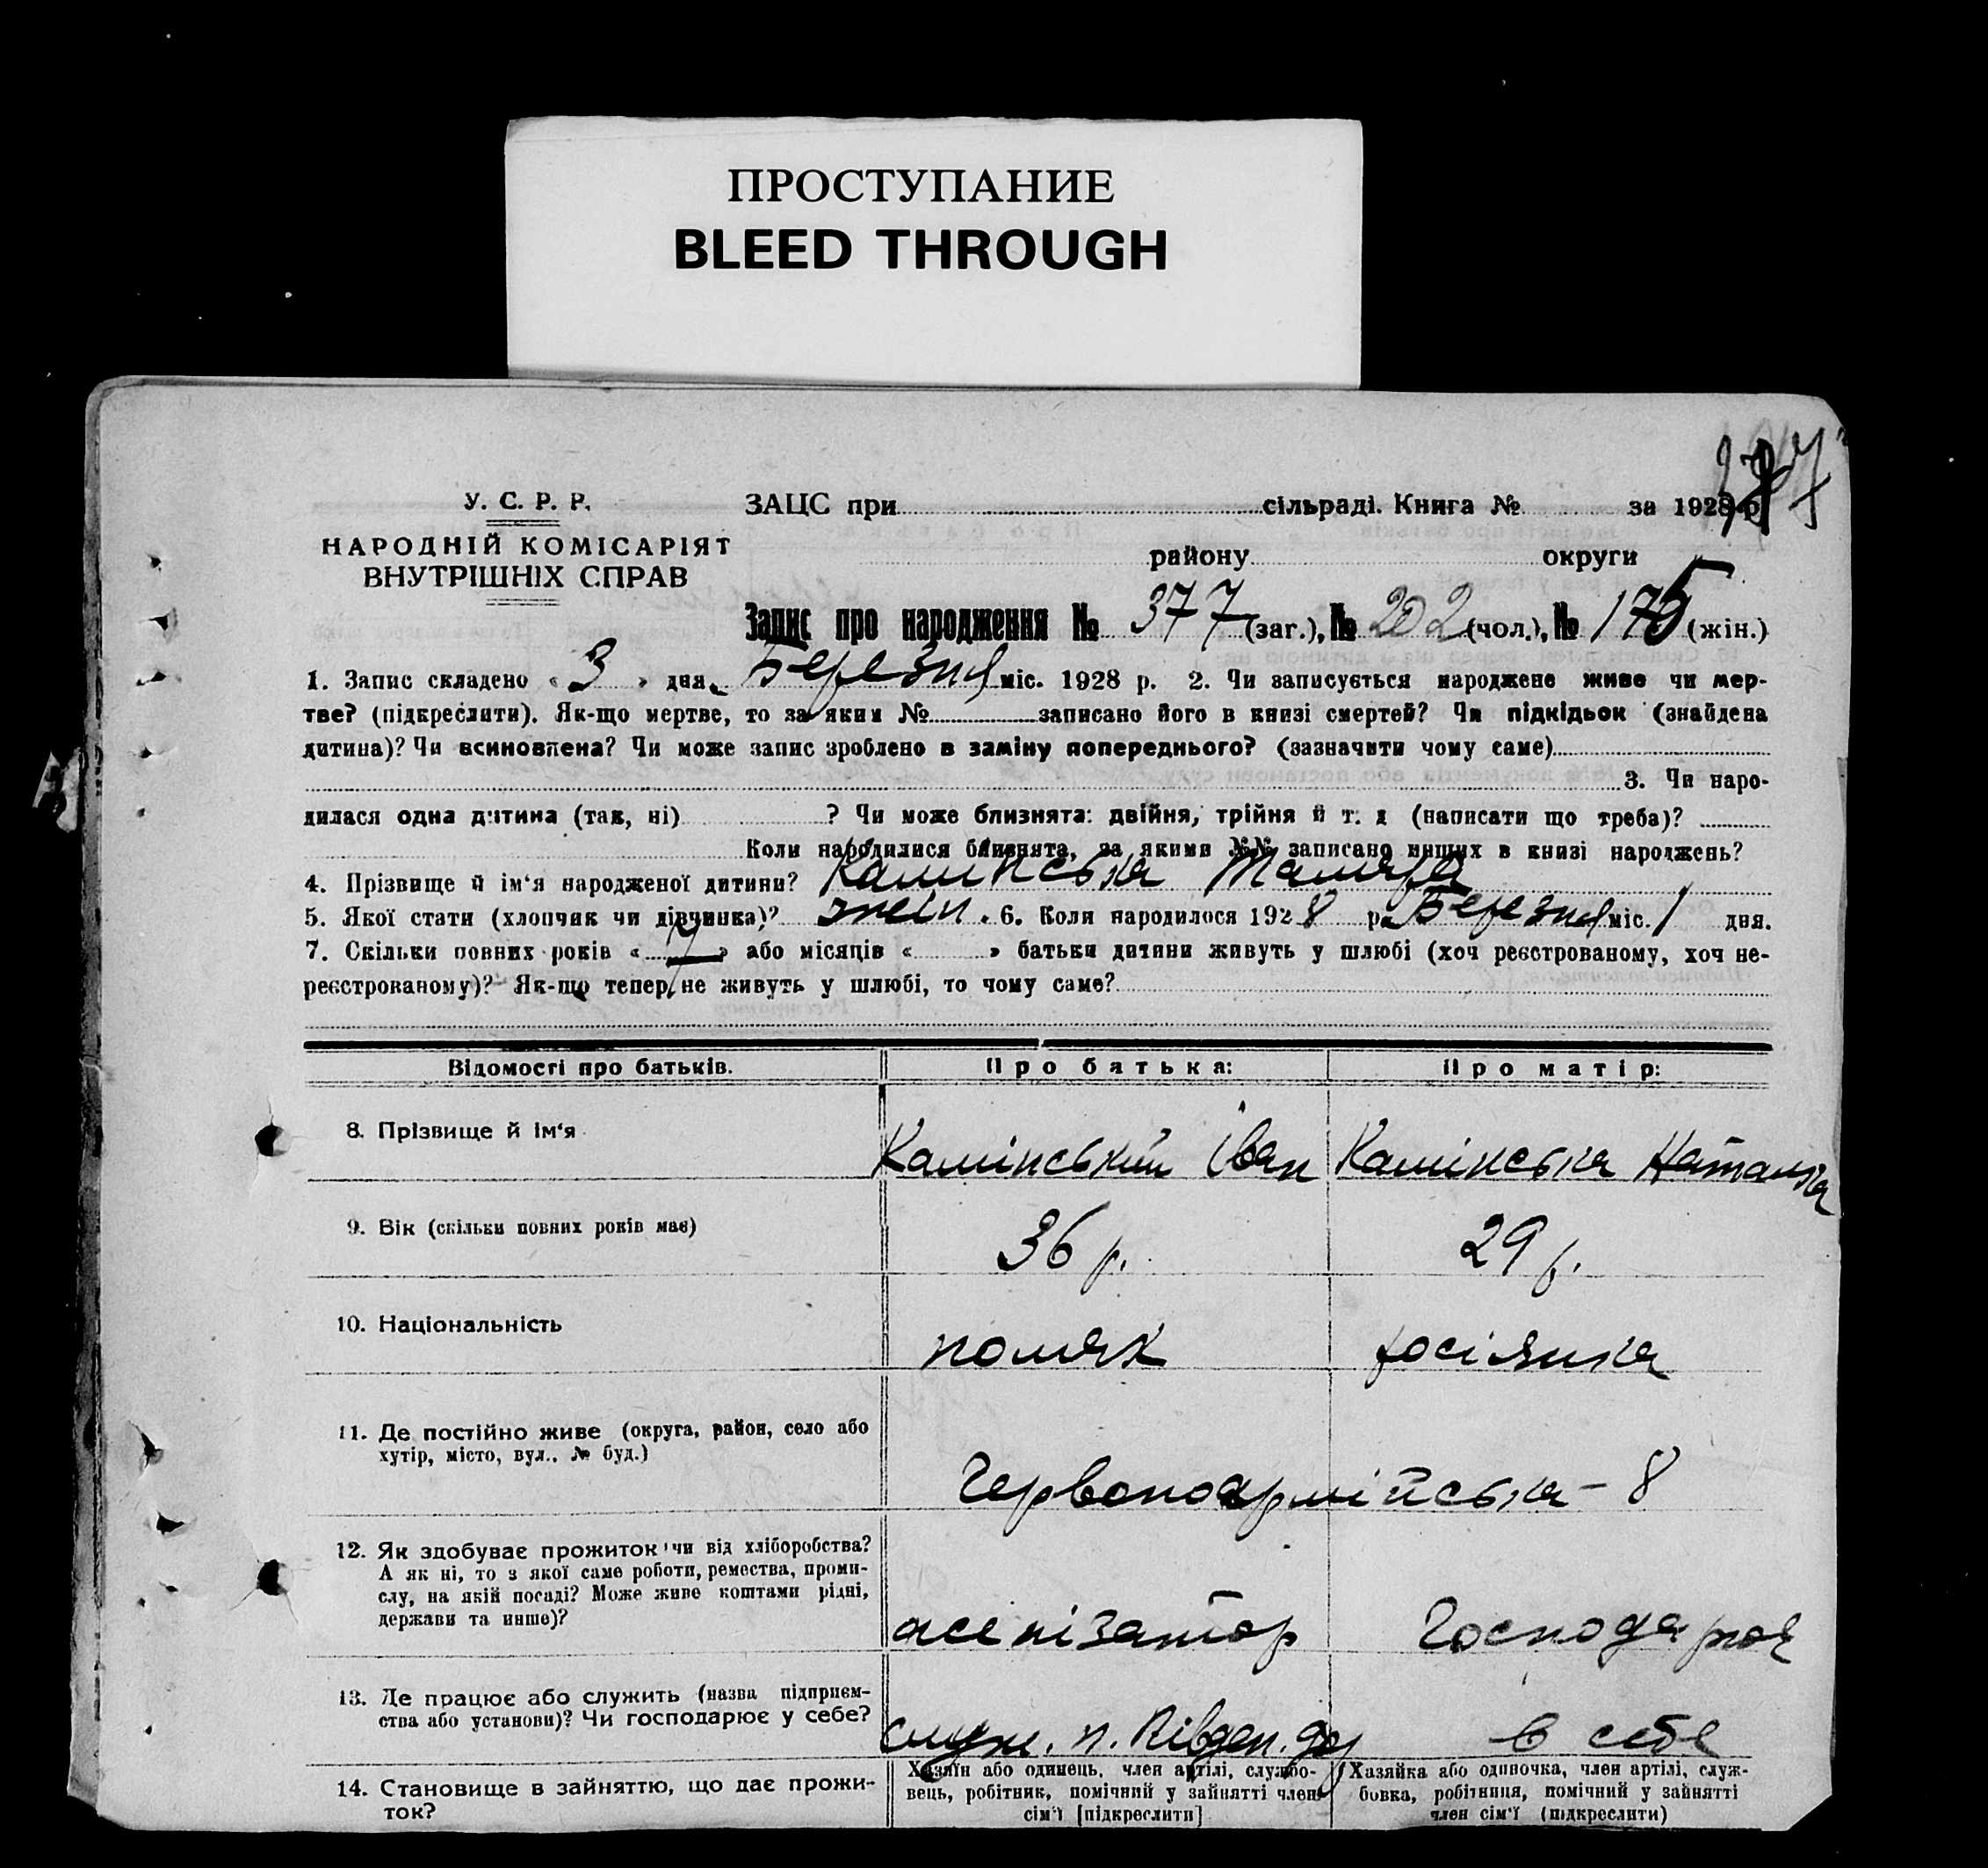 ПРОСТУПАНИЕ
BLEED THROUGH
У. С. Р. Р.
НАРОДНІЙ КОМІСАРІЯТ
ВНУТРІШНІХ СПРАВ
ЗАЦС при сільраді. Книга № за 1928 р.
району округи
Запис про народження № 377 (заг.), № 202 (чол.), № 175 (жін.)
1. Запис складено « 3 » дня Березня міс. 1928 р. 2. Чи записується народжене живе чи мер-
тве? (підкреслити). Як-що мертве, то за яким № записано його в книзі смертей? Чи підкідьок (знайдена
дитина)? Чи всиновлена? Чи може запис зроблено в заміну попереднього? (зазначити чому саме)
3. Чи наро-
дилася одна дитина (так, ні) ? Чи може близнята: двійня, трійня й т. д (написати що треба)?
Коли народилися близнята, за якими №№ записано инших в книзі народжень?
4. Прізвище й ім‘я народженої дитини? Камінська Тамара
5. Якої стати (хлопчик чи дівчинка)? жін. 6. Коли народилося 1928 р. Березня міс. 1 дня.
7. Скільки повних років « 7 » або місяців « » батьки дитини живуть у шлюбі (хоч реєстрованому, хоч не-
реєстрованому)? Як-що тепер не живуть у шлюбі, то чому саме?
Відомості про батьків. Про батька: Про матір:
8. Прізвище й ім‘я Камінський Іван Камінська Наталка
9. Вік (скільки повних років має) 36 р. 29 р.
10. Національність поляк росіянка
11. Де постійно живе (округа, район, село або
хутір, місто, вул., № буд.) Червоноармійська – 8
12. Як здобуває прожиток чи від хліборобства?
А як ні, то з якої саме роботи, ремества, проми-
слу, на якій посаді? Може живе коштами рідні,
держави та инше)? асенізатор Господарює
13. Де працює або служить (назва підприєм-
ства або установи)? Чи господарює у себе? служ. п. Півден. в себе
14. Становище в зайняттю, що дає прожи-
ток?
Хазяїн або одинець, член артілі, службо-
вець, робітник, помічний у зайнятті член
сім‘ї [підкреслити]
Хазяйка або одиночка, член артілі, служ-
бовка, робітниця, помічний у зайнятті
член сім‘ї (підкреслити)